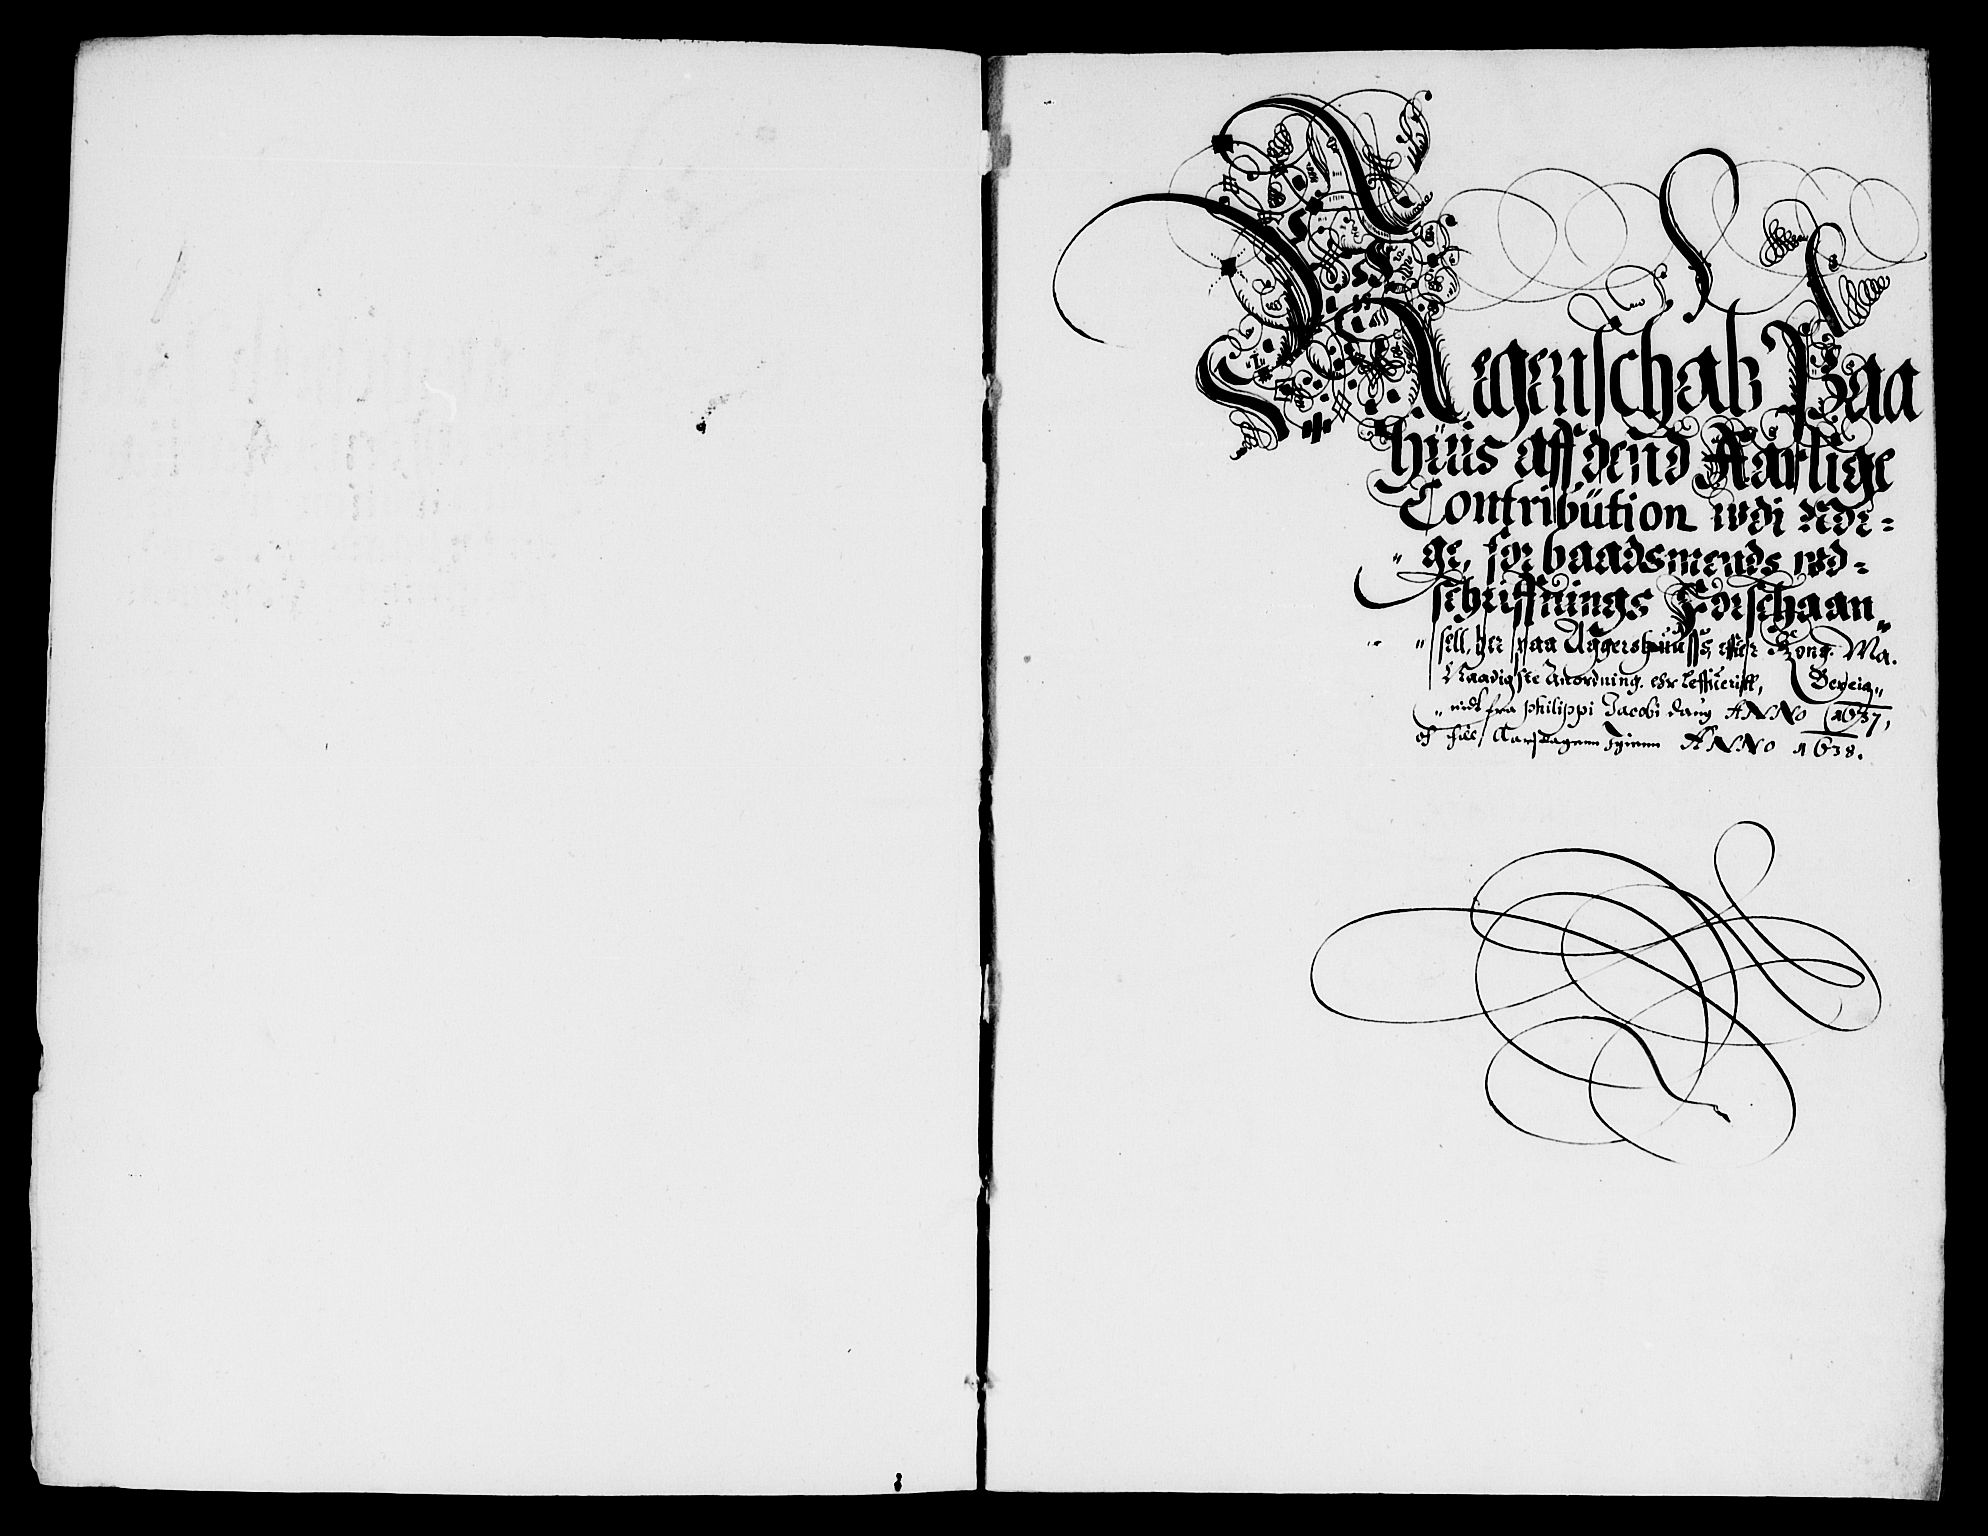 Regenschab Paa
hüis aff dend Aarlige
Contribütion
ge, for baadsmends wd=
schriffnings Forschaan„
„ sell, her paa Aggershüuss, effter Kong. Ma.
Naadigste Anordning. Bereig„
„ nidt fra Philippi Jacobi daug ANNO 1637,
och till Aarsdagenn Igienn ANNO 1638.